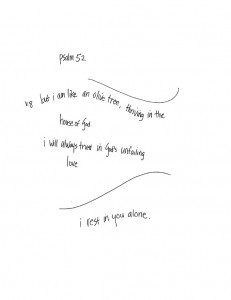 psalm 52
v8 but i am like an olive tree, thriving in the
house of God
i will always trust in God's unfailing
love
i rest in you alone.